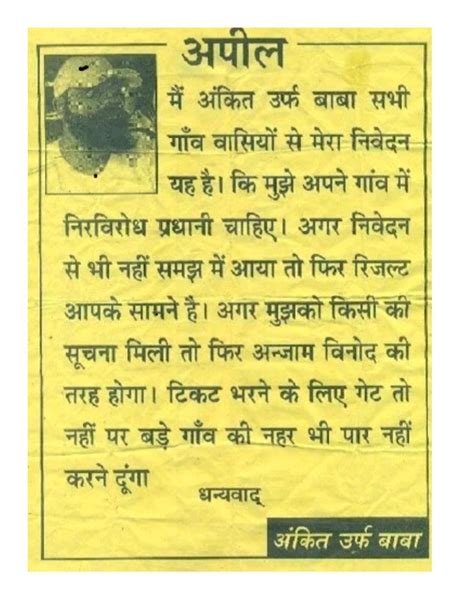 अपील
मैं अंकित उर्फ बाबा सभी
गाँव वासियों से मेरा निवेदन
यह है। कि मुझे अपने गांव में
निरविरोध प्रधानी चाहिए। अगर निवेदन
से भी नहीं समझ में आया तो फिर रिजल्ट
आपके सामने है। अगर मुझको किसी की
सूचना मिली तो फिर अन्जाम विनोद की
तरह होगा। टिकट भरने के लिए गेट तो
नहीं पर बड़े गाँव की नहर भी पार नहीं
करने दूंगा
धन्यवाद्
अंकित उर्फ बाबा